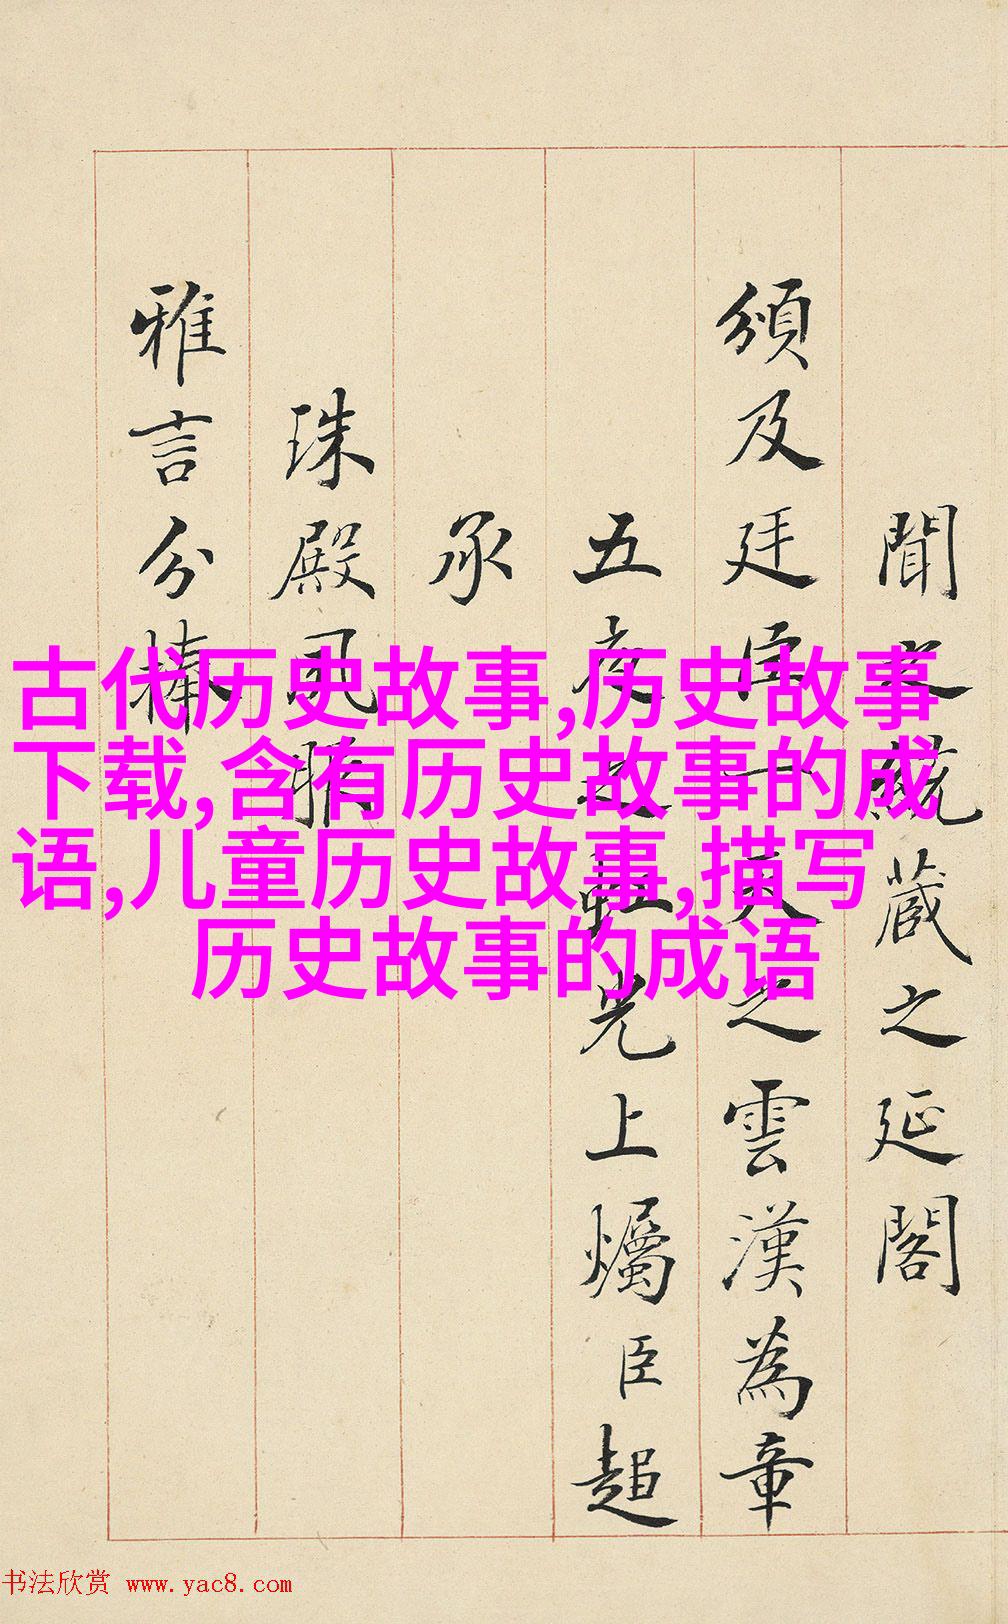 聞藏之延閣
頒及廷臣一天之雲漢為章
五夜之虹光上爥臣超
承
珠殿風
雅言分捧
古代历史故事,历史故事
下载,含有历史故事的成
语,儿童历史故事,描写
历史故事的成语
书法欣赏 www.yac8.com